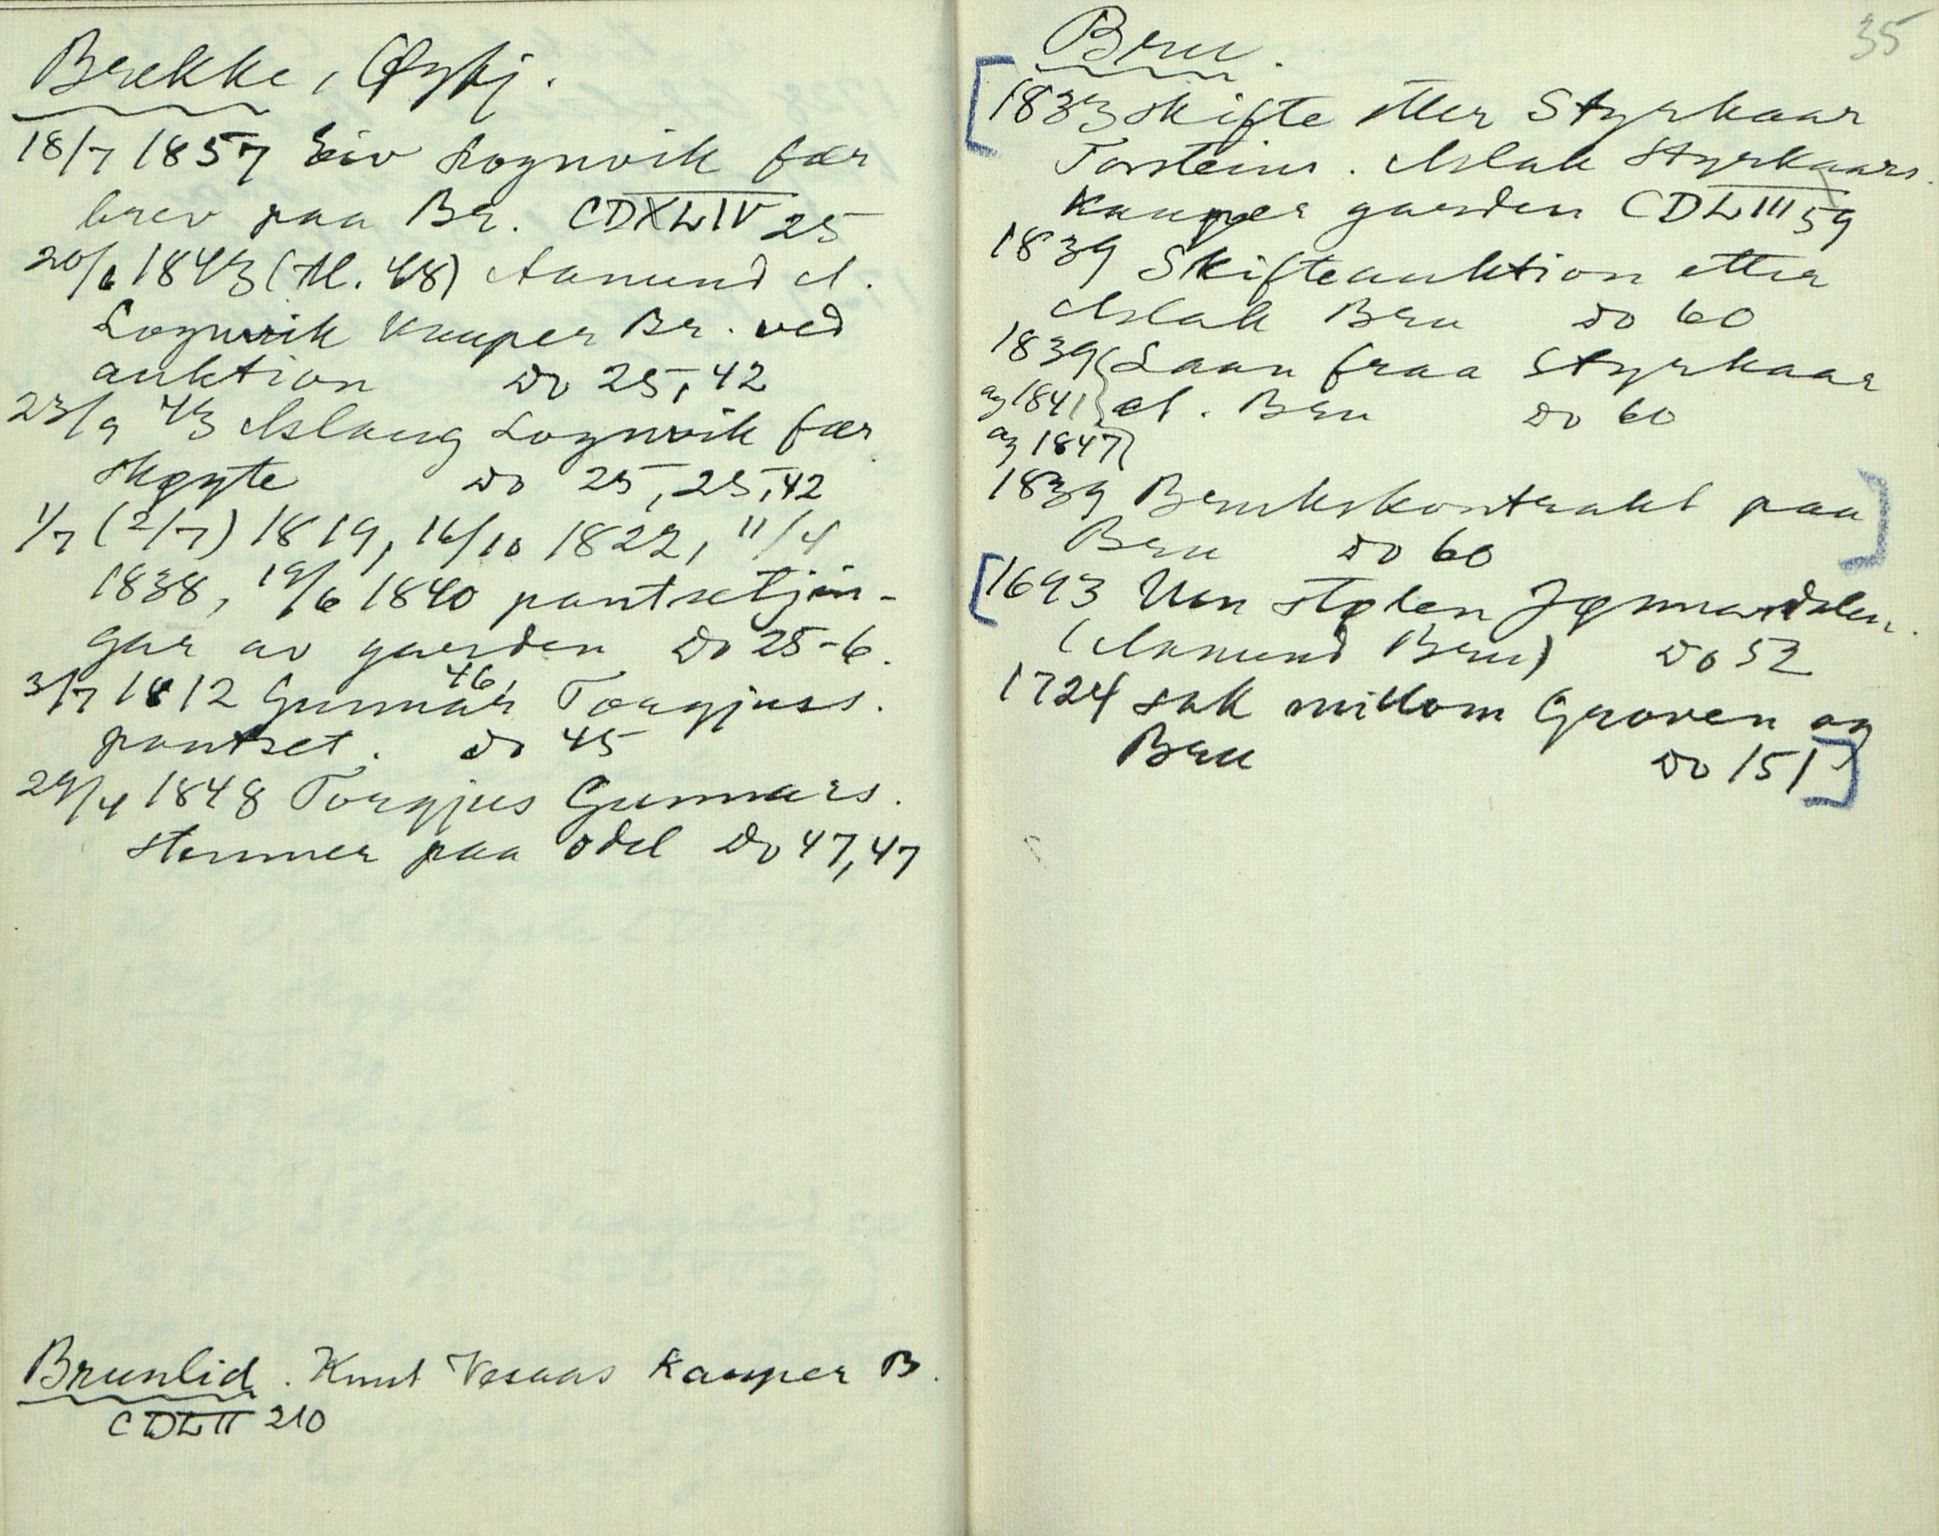 Brekke, Øyfj.
18/7 1857 Eiv Lognvik fær
brev paa Br. CDXLIV 25
20/6 1843 (Al. 48) Aamund A.
Lognvik kauper Br. ved
auktion Do 25, 42
23/9 43 Aslaug Lognvik fær
skøyte Do 25, 25, 42
1/7 (2/7) 1819, 16/10 1822, 11/4
1838, 19/6 1840 pantsetjin-
gar av garden Do 25-6.
3/7 1812 Gunnar Torgjuss.
pantset. Do 45
46,
29/4 1848 Torgjus Gunnars.
stemner paa odel Do 47, 47
Brunlid. Knut Vesaas kauper B.
CDLII 210
35
Bru.
1833 Skifte etter Styrkaar
Torsteins. Aslak Styrkaars.
kauper garden CDLIII 59
1839 Skifteauktion etter
Aslak Bru Do 60
1839 Laan fraa Styrkaar
og 1841 A. Bru Do 60
og 1847
1839 Brukskontrakt paa
Bru Do 60
1693 Um stølen
(Aamund Bru) Do 52
1724 sak millom Groven og
Bru Do 151